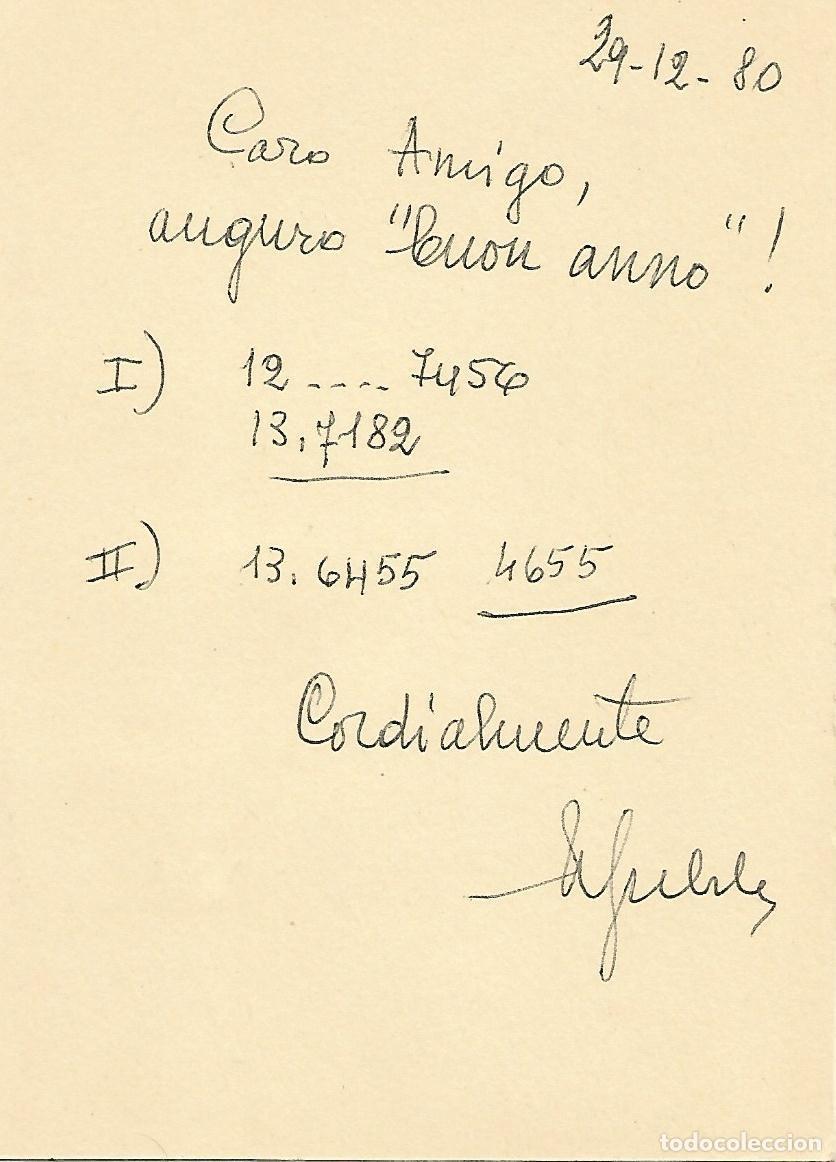 29-12-80
Caro Amigo,
auguro "buon anno"!
I) 12 .... 7456
13.7182
II) 13.6455 4655
Cordialmente
todocoleccion